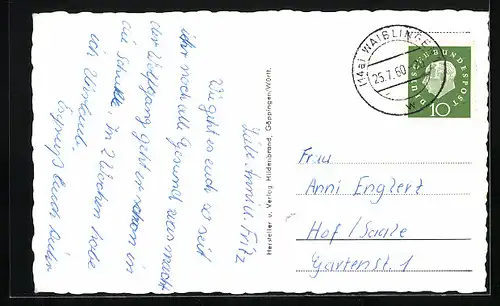 Liebe Anni u. Fritz
Wie geht es euch so seit
ihr noch alle Gesund was macht
der Wolfgang geht er schon in
die Schule, in 2 Wochen habe
ich Urlaub.
Es grüßt Euch
Hersteller u. Verlag Hildenbrand, Göppingen/Württ.
(14a) WAIBLINGEN
25.7.60
DEUTSCHE BUNDESPOST
10
Frau
Anni Englert
Hof/Saale
Gartenst. 1